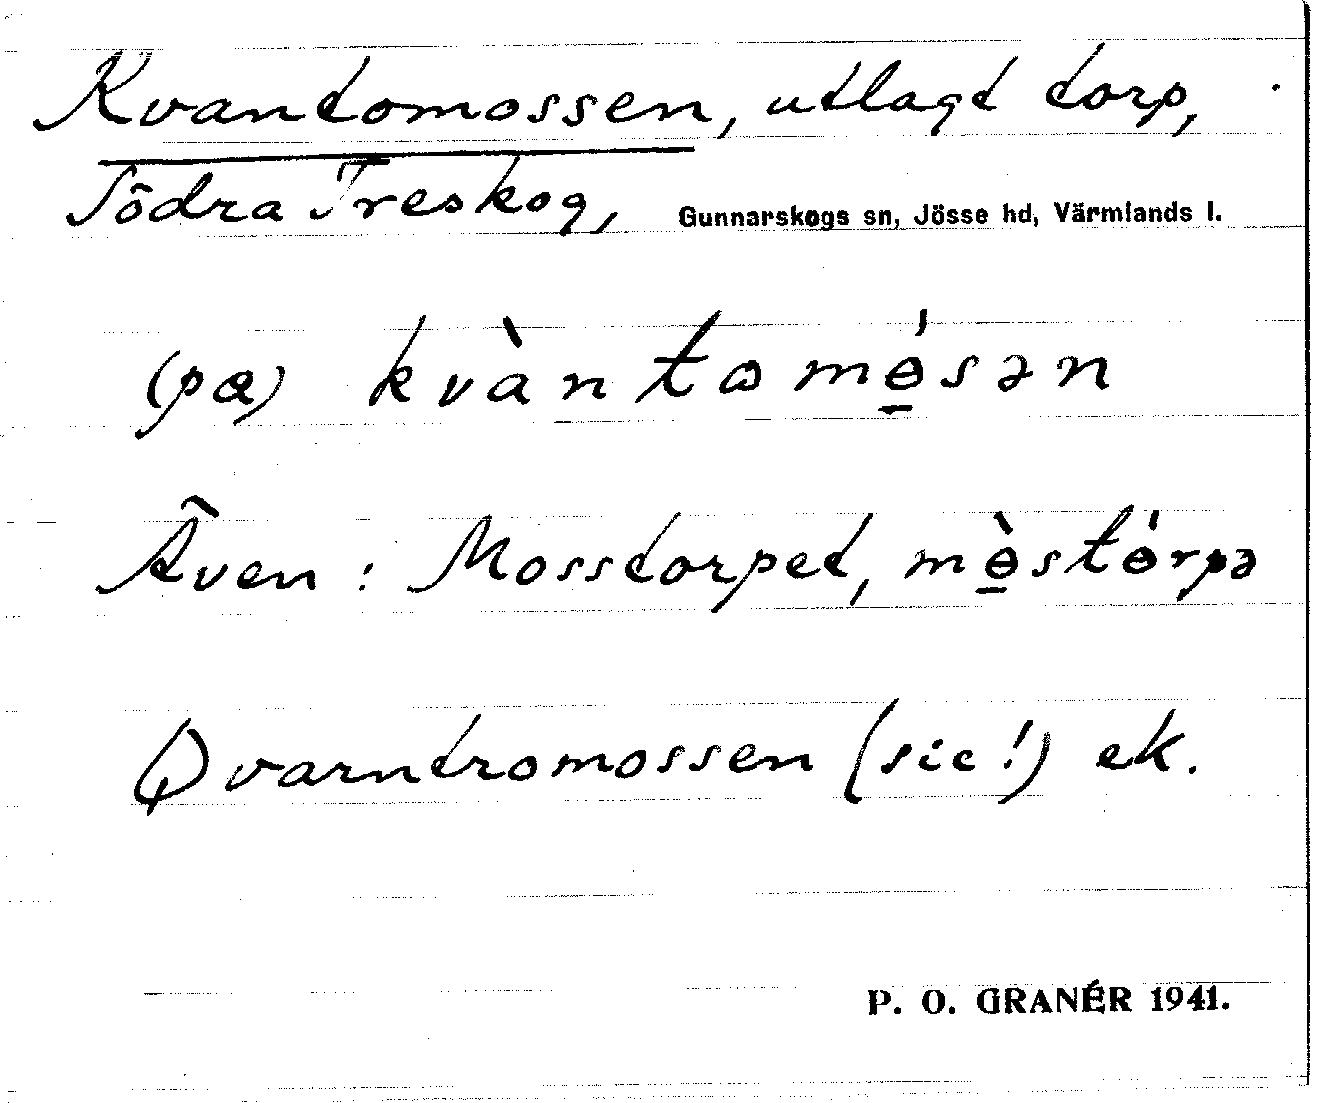 Kvantomossen, utlagt torp,
Södra Treskog, Gunnarskogs sn, Jösse hd, Värmlands l.
(pα) kvàntωmɵ̱́sən
Även: Mosstorpet, mɵ̱̀stɵ́rpə
Qvarntromossen (sic!) ek.
P. O. GRANÉR 1941.